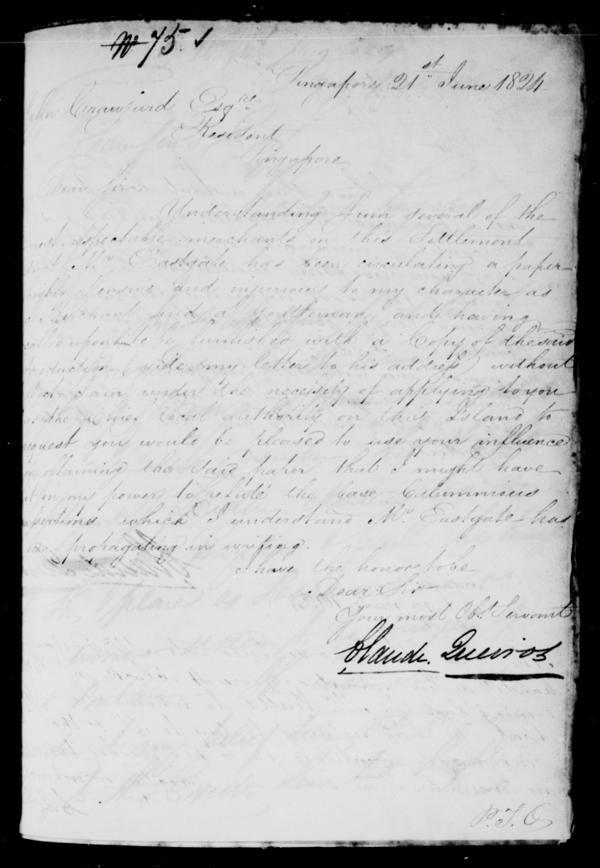 No 75.
Singapore 21st June 1824
John Crawfurd Esqre
Resident
Singapore
Dear Sir
Understanding from several of the
most respectable merchants on this Settlement
that Mr Eastgate has been circulating a paper
and injurious to my character as
a Merchant and a gentleman, and having
called upon to be furnished with a Copy of the said
production (vide my letter to his address) without
I am under the necessity of applying to you
as the Chief local authority on this Island to
request you would be pleased to use your influence
in obtaining the said paper that I might have
it in my power to refute the base Calumnious
assertions which I understand Mr Eastgate has
been propagating in writing.
I have the honor to be
Dear Sir
Your most Obt Servant
Claude Queiros.
P.T.O